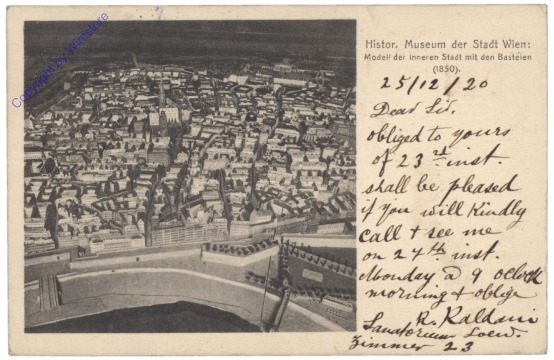 Copyright by Wienstore
Histor. Museum der Stadt Wien:
Modell der inneren Stadt mit den Basteien
(1850).
25/12/20
Dear Sir,
obliged to yours
of 23rd inst.
shall be pleased
if you will Kindly
call + see me
on 27th inst.
Monday @ 9 oclock
morning + oblige
R. Raldini
Sanatorium Loew.
Zimmer 23